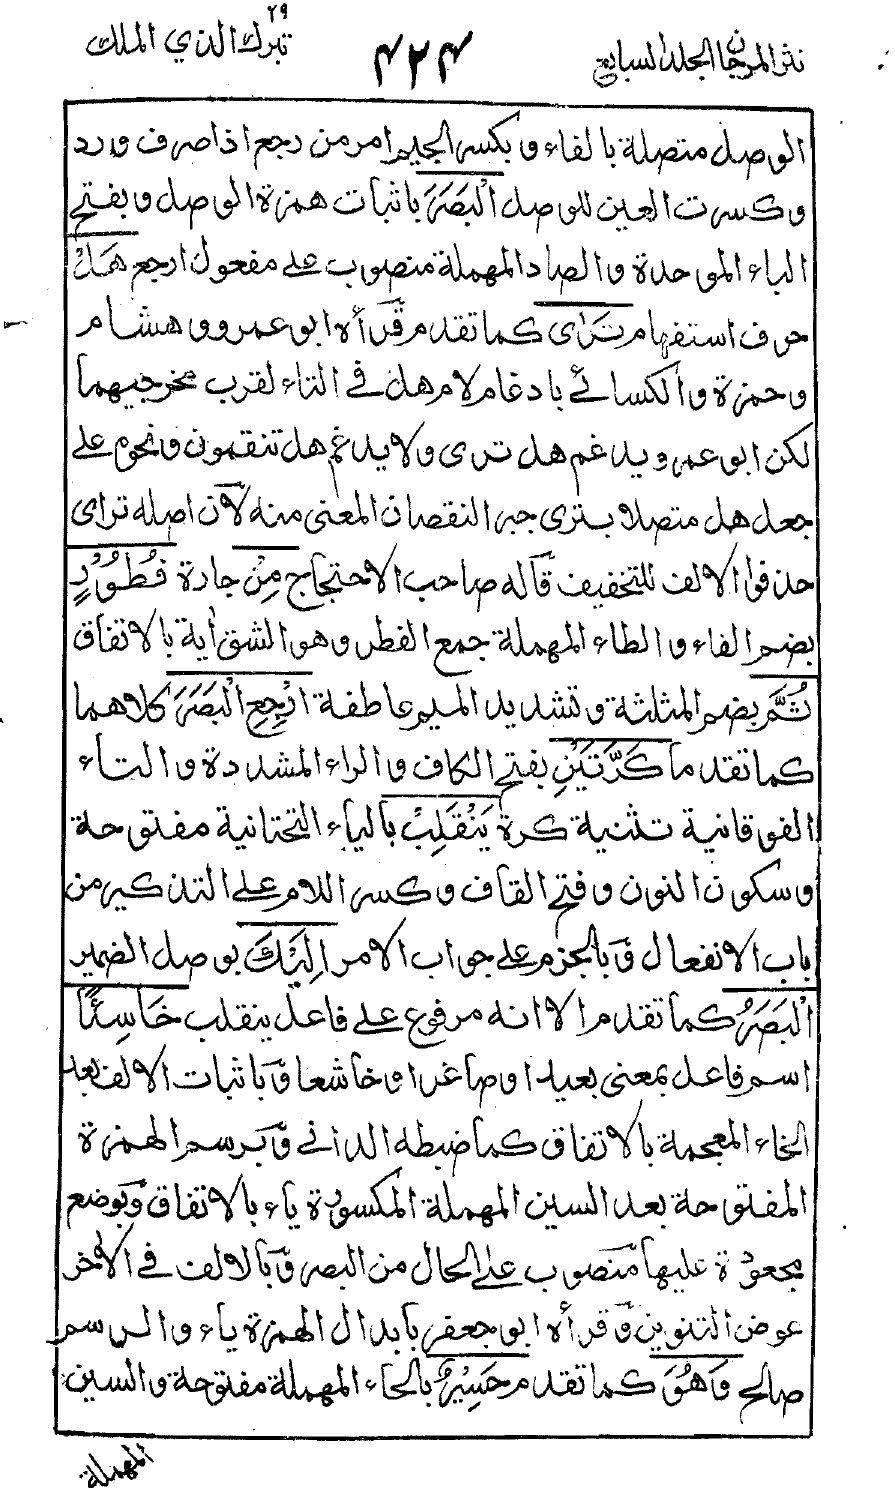 نثر المرجان الجلد السابع ٤٢٤ تبرك الذي الملك ٢٩
الوصل متصلة بالفاء وبكسر الجيم امر من رجع اذا صرف ورد
وكسرت العين للوصل الْبَصَرَ باثبات همزة الوصل وبفتح
الباء الموحدة والصاد المهملة منصوب على مفعول ارجع هَلْ
حرف استفهام تَرٰى كما تقدم قرأه ابو عمرو وهشام
وحمزة والكسائي بادغام لام هل في التاء لقرب مخرجيهما
لكن ابو عمرو يدغم هل ترى ولا يدغم هل تنقمون ونحوه على
جعل هل متصلا بترى جبر النقصان المعنى منه لان اصله تراى
حذفوا الالف للتخفيف قاله صاحب الاحتجاج مِنْ جارة فُطُوْرٍ
بضم الفاء والطاء المهملة جمع الفطر وهو الشق اٰية بالاتفاق
ثُمَّ بضم المثلثة وتشديد الميم عاطفة ارْجِعِ الْبَصَرَ كلاهما
كما تقدما كَرَّتَيْنِ بفتح الكاف والراء المشددة والتاء
الفوقانية تثنية كرة يَنْقَلِبْ بالياء التحتانية مفتوحة
وسكون النون وفتح القاف وكسر اللام على التذكير من
باب الانفعال وبالجزم على جواب الامر اِلَيْكَ بوصل الضمير
الْبَصَرُ كما تقدم الا انه مرفوع على فاعل ينقلب خَاسِئًا
اسم فاعل بمعنى بعيدا وصاغرا وخاشعا وباثبات الالف بعد
الخاء المعجمة بالاتفاق كما ضبطه الداني وبرسم الهمزة
المفتوحة بعد السين المهملة المكسورة ياء بالاتفاق وبوضع
مجعودة عليها منصوب على الحال من البصر وبالالف في الاٰخر
عوض التنوين وقرأه ابو جعفر بابدال الهمزة ياء والرسم
صالح وَهُوَ كما تقدم حَسِيْرٌ بالحاء المهملة مفتوحة والسين
المهملة